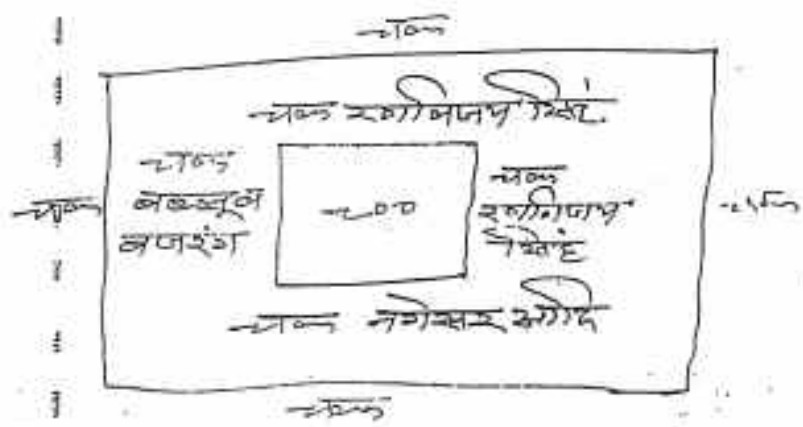 चक
चक रणविजय सिंह
चक
बबलू व
बजरंग
चक
रणविजय
सिंह
चक
चक
चक नगेसर आदि
चक